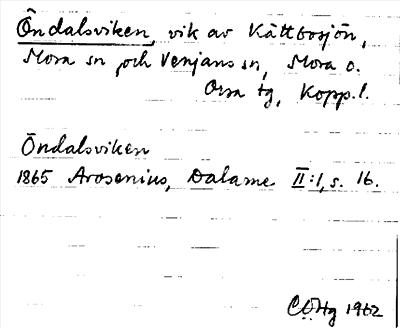 Öndalsviken, vik av Kättbosjön,
Mora sn och Venjans sn, Mora o.
Orsa tg, Kopp.l.
Öndalsviken
1865 Arosenius, Dalarne II:1, s. 16.
COHg 1962